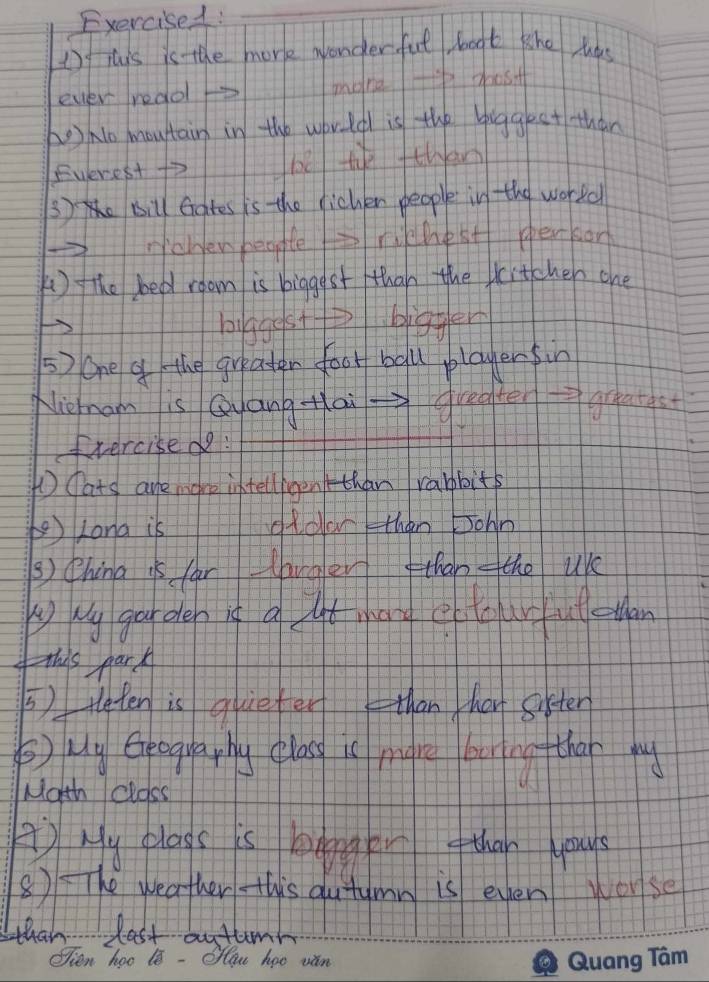 Exercise 1:
1) This is the more wonderful book she has
ever read → more → most
2) No mountain in the world is the biggest than
Everest → bỏ từ than
3) The Bill Gates is the richer people in the world
→ richer people → richest person
4) The bed room is biggest than the kitchen one
→ biggest → bigger
5) One of the greater foot ball players in
Vietnam is Quang Hai → greater → greatest
Exercise 2:
1) Cats are more intelligent than rabbits
2) Lona is older than John
3) China is far larger than the UK
4) My garden is a lot more colourful than
this park
5) Helen is quieter than her sister
6) My Geography class is more boring than my
Math class
7) My class is bigger than yours
8) The weather this autumn is even worse
than last autumn
Tiên học lễ - Hậu học văn
Quang Tâm